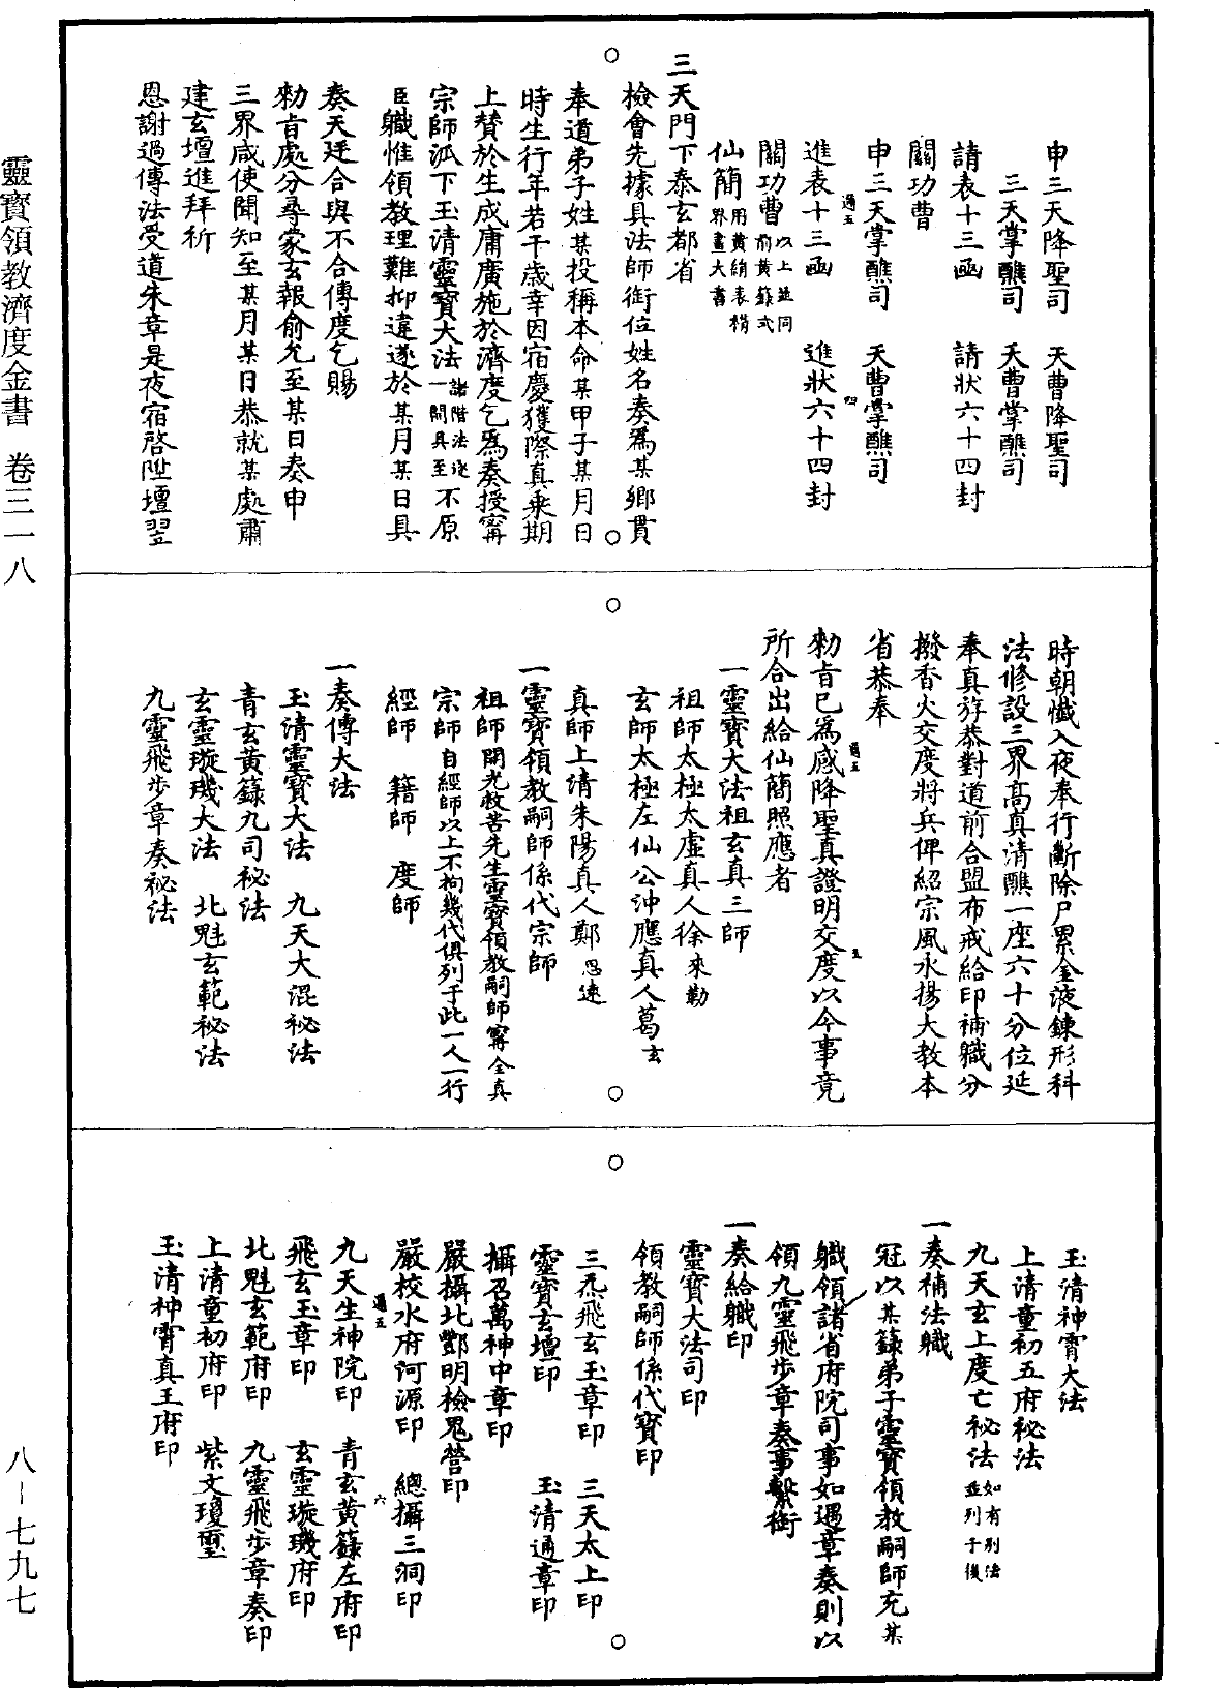 申三天降聖司　天曹降聖司
三天掌醮司　天曹掌醮司
請表十三函　請狀六十四封
關功曹
申三天掌醮司　天曹掌醮司
進表十三函　進狀六十四封
關功曹以上並同前黃籙式
仙簡用黃絹表褙界畫大書
三天門下泰玄都省
檢會先據具法師銜位姓名奏爲某鄉貫
奉道弟子姓某投稱本命某甲子某月日
時生行年若干歲幸因宿慶獲際真乘期
上贊於生成庸廣施於濟度乞爲奏授甯
宗師派下玉清靈寶大法諸階法逐一開具至不原
臣職惟領教理難抑違遂於某月某日具
奏天廷合與不合傳度乞賜
勑旨處分尋蒙玄報俞允至某日奏申
三界咸使聞知至某月某日恭就某處肅
建玄壇進拜祈
恩謝過傳法受道朱章是夜宿啓陞壇翌
時朝懺入夜奉行斷除尸累金液鍊形科
法修設三界高真清醮一座六十分位延
奉真斿恭對道前合盟布戒給印補職分
撥香火交度將兵俾紹宗風永揚大教本
省恭奉
勑旨已爲感降聖真證明交度以今事竟
所合出給仙簡照應者
一靈寶大法祖玄真三師
祖師太極太虛真人徐來勒
玄師太極左仙公沖應真人葛玄
真師上清朱陽真人鄭思遠
一靈寶領教嗣師係代宗師
祖師開光救苦先生靈寶領教嗣師甯全真
宗師自經師以上不拘幾代俱列于此一人一行
經師　籍師　度師
一奏傳大法
玉清靈寶大法　九天大混祕法
青玄黃籙九司祕法
玄靈璇璣大法　北魁玄範祕法
九靈飛步章奏祕法
玉清神霄大法
上清童初五府祕法
九天玄上度亡祕法如有別法並列于後
一奏補法職
冠以某籙弟子靈寶領教嗣師充某
職領諸省府院司事如遇章奏則以
領九靈飛步章奏事繫銜
一奏給職印
靈寶大法司印
領教嗣師係代寶印
三炁飛玄玉章印　三天太上印
靈寶玄壇印　玉清通章印
攝召萬神中章印
嚴攝北酆明檢鬼營印
嚴校水府河源印　總攝三洞印
九天生神院印　青玄黃籙左府印
飛玄玉章印　玄靈璇璣府印
北魁玄範府印　九靈飛步章奏印
上清童初府印　紫文瓊璽
玉清神霄真王府印
靈寶領教濟度金書　卷三一八
八－七九七